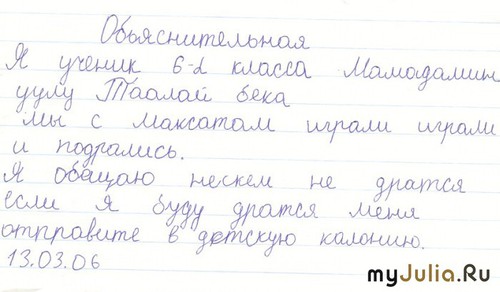 Обьяснительная
Я ученик 6-d класса Мамадамин
уулу Таалай бека
мы с Максатом играли играли
и подрались.
Я обещаю нескем не дратся
если я буду дратся меня
отправите в детскую калонию.
13.03.06
myJulia.Ru